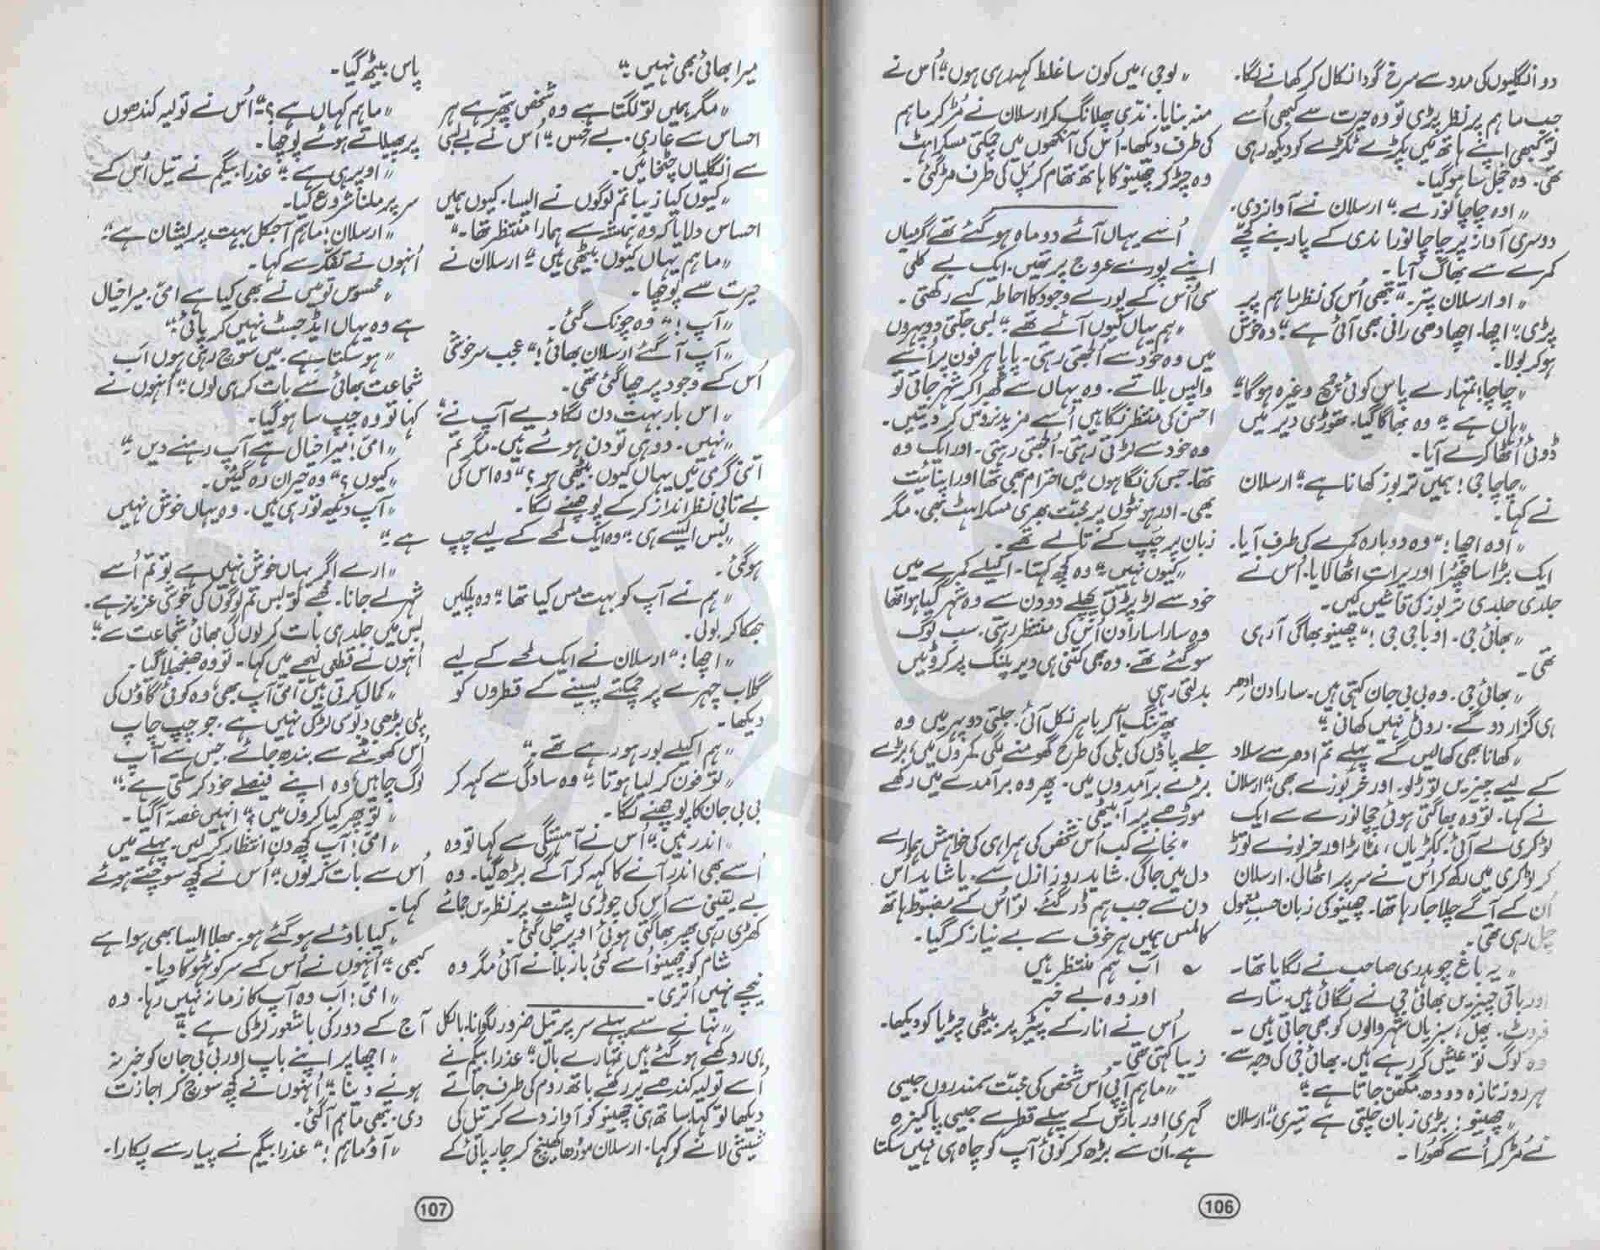 دو انگلیوں کی مدد سے سرخ گودا نکال کر کھانے لگا۔
جب ماہم پر نظر پڑی تو وہ حیرت سے کبھی اُسے
تو کبھی اپنے ہاتھ میں پکڑے ٹکڑے کو دیکھ رہی
تھی۔ وہ خجل سا ہو گیا۔
"اوہ چاچا نورے!" ارسلان نے آواز دی۔
دوسری آواز پر چاچا نورا ندی کے پار بنے کچے
کمرے سے بھاگ آیا۔
"او ارسلان پتر۔" تبھی اُس کی نظر ماہم پر
پڑی! "اچھا۔ اچھا دھی رانی بھی آئی ہے" وہ خوش
ہو کر بولا۔
"چاچا! تمہارے پاس کوئی چمچ وغیرہ ہوگا"
"ہاں ہے" وہ بھاگا گیا۔ تھوڑی دیر میں
ڈوئی اُٹھا کر لے آیا۔
"چاچا جی! ہمیں تربوز کھانا ہے" ارسلان
نے کہا۔
"اوہ اچھا!" وہ دوبارہ کمرے کی طرف آیا۔
ایک بڑا سا چھرا اور پرات اٹھا لایا۔ اُس نے
جلدی جلدی تربوز کی قاشیں کیں۔
"بھائی جی۔ او باجی جی!" چھینو بھاگی آ رہی
تھی۔
"بھائی جی۔ وہ بی بی جان کہتی ہیں۔ سارا دن ادھر
ہی گزار دو گے۔ روٹی نہیں کھانی"
"کھانا بھی کھا لیں گے پہلے تم ادھر سے سلاد
کے لیے چیزیں توڑ لو۔ اور خربوزے بھی" ارسلان
نے کہا۔ تو وہ بھاگتی ہوئی چچا نورے سے ایک
ٹوکری لے آئی۔ ککڑیاں، ٹماٹر اور خربوزے توڑ
کر ٹوکری میں رکھ کر اُس نے سر پر اٹھا لی۔ ارسلان
اُن کے آگے چلا جا رہا تھا۔ چھینو کی زبان حسب معمول
چل رہی تھی۔
"یہ باغ چوہدری صاحب نے لگایا تھا۔
اور باقی چیزیں بھائی جی نے لگائی ہیں۔ سارے
فروٹ۔ پھل، سبزیاں شہر والوں کو بھی جاتی ہیں۔
وہ لوگ تو عیش کر رہے ہیں۔ بھائی جی کی وجہ سے۔
ہر روز تازہ دودھ مکھن جاتا ہے"
"چھینو! بڑی زبان چلتی ہے تیری" ارسلان
نے مُڑ کر اُسے گھورا۔
"لو جی، میں کون سا غلط کہہ رہی ہوں" اُس نے
منہ بنایا۔ ندی پھلانگ کر ارسلان نے مُڑ کر ماہم
کی طرف دیکھا۔ اُس کی آنکھوں میں چمکتی مسکراہٹ
وہ چڑ کر چھینو کا ہاتھ تھام کر پل کی طرف مڑ گئی۔
اُسے یہاں آئے دو ماہ ہو گئے تھے گرمیاں
اپنے پورے عروج پر تھیں۔ ایک بے کلی
سی اُس کے پورے وجود کا احاطہ کیے رکھتی۔
"ہم یہاں کیوں آئے تھے" لمبی جلتی دوپہروں
میں وہ خود سے اُلجھتی رہتی۔ پاپا ہر فون پر اُسے
واپس بلاتے۔ وہ یہاں سے گھبرا کر شہر جاتی تو
احسن کی منتظر نگاہیں اُسے مزید نروس کر دیتیں۔
وہ خود سے لڑتی رہتی۔ اُلجھتی رہتی۔ اور ایک وہ
تھا۔ جس کی نگاہوں میں احترام بھی تھا اور اپنائیت
بھی۔ اور ہونٹوں پر محبت بھری مسکراہٹ بھی، مگر
زبان پر چپ کے تالے تھے۔
"کیوں نہیں" وہ کچھ کہتا۔ اکیلے کمرے میں
خود سے لڑ پڑتی پچھلے دو دن سے وہ شہر گیا ہوا تھا
وہ سارا سارا دن اُس کی منتظر رہتی۔ سب لوگ
سو گئے تھے۔ وہ بھی کتنی ہی دیر پلنگ پر کروٹیں
بدلتی رہی
پھر تنگ آ کر باہر نکل آئی۔ جلتی دوپہر میں وہ
جلے پاؤں کی بلی کی طرح گھومنے لگی کمروں میں، بڑے
بڑے برآمدوں میں۔ پھر وہ برآمدے میں رکھے
موڑھے پر آ بیٹھی۔
"نجانے کب اُس شخص کی ہمراہی کی خواہش ہمارے
دل میں جاگی۔ شاید روز ازل سے۔ یا شاید اُس
دن سے جب ہم ڈر گئے۔ تو اُس کے مضبوط ہاتھ
کا لمس ہمیں ہر خوف سے بے نیاز کر گیا۔
اب ہم منتظر ہیں
اور وہ بے خبر
اُس نے انار کے پیڑ پر بیٹھی چڑیا کو دیکھا۔
زیبا کہتی تھی۔
"ماہم آپی اُس شخص کی محبت سمندروں جیسی
گہری اور بارش کے پہلے قطرے جیسی پاکیزہ
ہے۔ اُن سے بڑھ کر کوئی آپ کو چاہ ہی نہیں سکتا
106
میرا بھائی بھی نہیں"
"مگر ہمیں تو لگتا ہے وہ شخص پتھر ہے ہر
احساس سے عاری۔ بے حس" اُس نے بے بسی
سے انگلیاں چٹخائیں۔
"کیوں کیا زیبا تم لوگوں نے ایسا۔ کیوں ہمیں
احساس دلایا کہ وہ ہمیشہ سے ہمارا منتظر تھا۔"
"ماہم یہاں کیوں بیٹھی ہیں" ارسلان نے
حیرت سے پوچھا۔
"آپ!" وہ چونک گئی۔
"آپ آ گئے ارسلان بھائی!" عجب سرخوشی
اُس کے وجود پر چھا گئی تھی۔
"اس بار بہت دن لگا دیے آپ نے"
"نہیں۔ دو ہی تو دن ہوئے ہیں۔ مگر تم
اتنی گرمی میں یہاں کیوں بیٹھی ہو؟" وہ اس کی
بے تابی نظر انداز کر کے پوچھنے لگا۔
"بس ایسے ہی" وہ ایک لمحے کے لیے چپ
ہو گئی۔
"ہم نے آپ کو بہت مس کیا تھا" وہ پلکیں
جھکا کر بولی۔
"اچھا!" ارسلان نے ایک لمحے کے لیے
گلاب چہرے پر چمکتے پسینے کے قطروں کو
دیکھا۔
"ہم اکیلے بور ہو رہے تھے۔"
"تو فون کر لیا ہوتا" وہ سادگی سے کہہ کر
بی بی جان کا پوچھنے لگا۔
"اندر ہیں" اُس نے آہستگی سے کہا تو وہ
اُسے بھی اندر آنے کا کہہ کر آگے بڑھ گیا۔ وہ
بے یقینی سے اُس کی چوڑی پشت پر نظریں جمائے
کھڑی رہی پھر بھاگتی ہوئی اوپر چلی گئی۔
شام کو چھینو اُسے کئی بار بلانے آئی مگر وہ
نیچے نہیں اُتری۔
"نہانے سے پہلے سر پر تیل ضرور لگوانا، بالکل
ہی روکھے ہو گئے ہیں تمہارے بال" عذرا بیگم نے
اُسے تولیہ کندھے پر رکھے باتھ روم کی طرف جاتے
دیکھا تو کہا ساتھ ہی چھینو کو آواز دے کر تیل کی
شیشی لانے کو کہا۔ ارسلان موڑھا کھینچ کر چارپائی کے
پاس بیٹھ گیا۔
"ماہم کہاں ہے؟" اُس نے تولیہ کندھوں
پر پھیلاتے ہوئے پوچھا۔
"اوپر ہی ہے" عذرا بیگم نے تیل اُس کے
سر پر ملنا شروع کیا۔
"ارسلان! ماہم آجکل بہت پریشان ہے"
اُنہوں نے تفکر سے کہا۔
"محسوس تو میں نے بھی کیا ہے امی، میرا خیال
ہے وہ یہاں ایڈجسٹ نہیں کر پائی"
"ہو سکتا ہے۔ میں سوچ رہی ہوں اب
شجاعت بھائی سے بات کر ہی لوں" اُنہوں نے
کہا تو وہ چپ سا ہو گیا۔
"امی! میرا خیال ہے آپ رہنے دیں"
"کیوں؟" وہ حیران رہ گئیں۔
"آپ دیکھ تو رہی ہیں۔ وہ یہاں خوش نہیں
ہے"
"ارے اگر یہاں خوش نہیں ہے تو تم اُسے
شہر لے جانا۔ مجھے تو بس تم لوگوں کی خوشی عزیز ہے۔
بس میں جلد ہی بات کر لوں گی بھائی شجاعت سے"
اُنہوں نے قطعی لہجے میں کہا۔ تو وہ جھنجھلا گیا۔
"کمال کرتی ہیں امی آپ بھی، وہ کوئی گاؤں کی
پلی بڑھی دبو سی لڑکی نہیں ہے۔ جو چپ چاپ
اُس کھونٹے سے بندھ جائے، جس سے آپ
لوگ چاہیں، وہ اپنے فیصلے خود کر سکتی ہے"
"تو پھر کیا کروں میں" انہیں غصہ آ گیا۔
"امی! آپ کچھ دن انتظار کر لیں۔ پہلے میں
اُس سے بات کر لوں" اُس نے کچھ سوچتے ہوئے
کہا۔
"کیا باؤلے ہو گئے ہو۔ بھلا ایسا بھی ہوا ہے
کبھی" اُنہوں نے اُس کے سر کو ٹہوکا دیا۔
"امی! اب وہ آپ کا زمانہ نہیں رہا۔ وہ
آج کے دور کی باشعور لڑکی ہے"
"اچھا پر اپنے باپ اور بی بی جان کو خبر نہ
ہونے دینا" اُنہوں نے کچھ سوچ کر اجازت
دی۔ تبھی ماہم آ گئی۔
"آؤ ماہم!" عذرا بیگم نے پیار سے پکارا۔
107